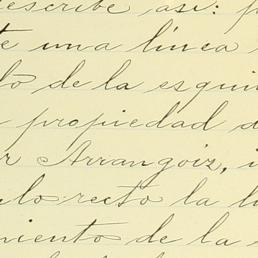 escribe así: p
te una línea
lo de la esqui
propiedad d
r Arrangoiz, i
ulo recto la l
miento de la